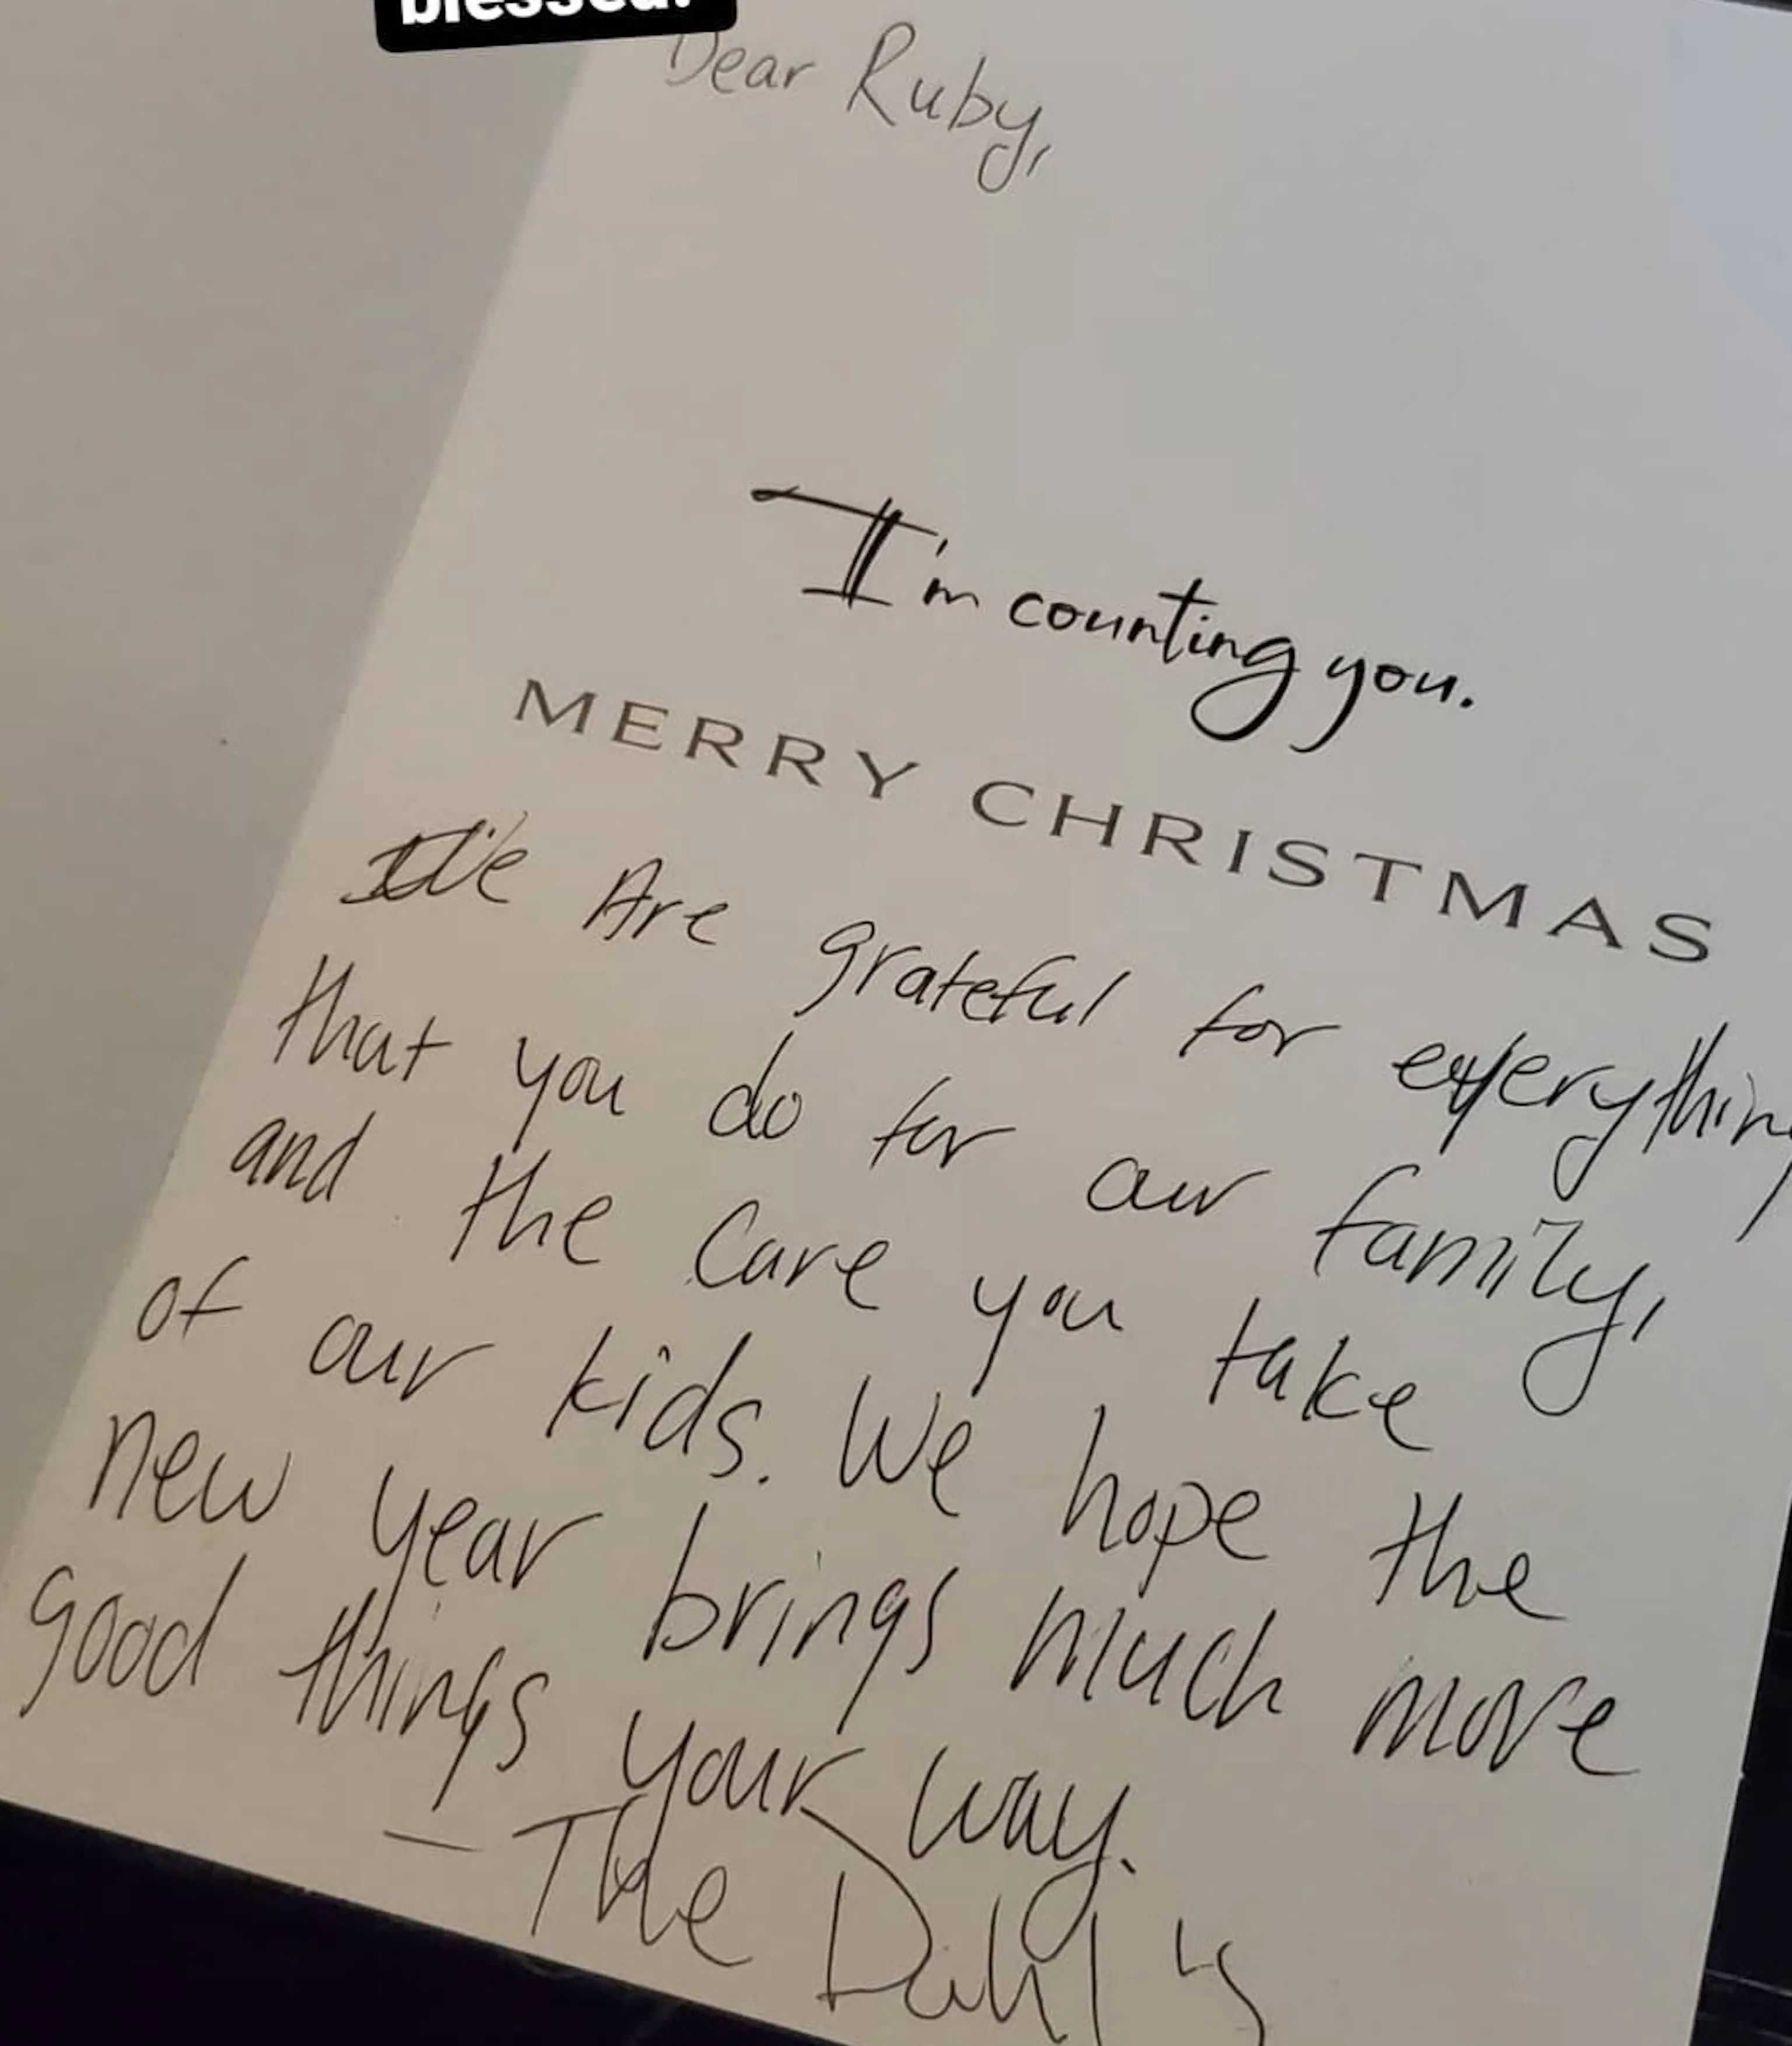 blessed.
Dear Ruby,
I'm counting you.
MERRY CHRISTMAS
We Are grateful for everything
that you do for our family,
and the Care you take
of our kids. We hope the
new year brings much more
good things your way.
— The Dahl's